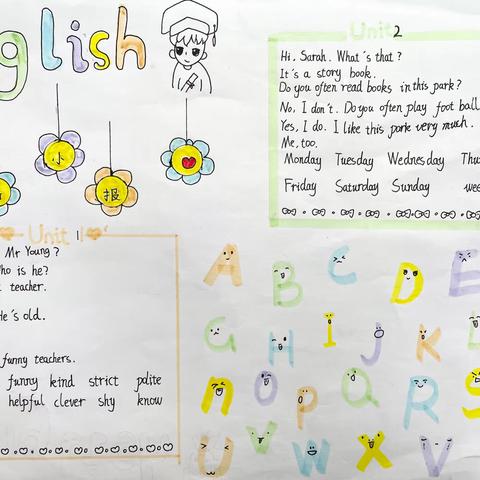 glish
小
报
Unit2
Hi, Sarah. What's that?
It's a story book.
Do you often read books in this park?
No, I don't. Do you often play foot ball
Yes, I do. I like this park very much.
Me, too.
Monday Tuesday Wednesday Thu
Friday Saturday Sunday wee
Unit 1
Mr Young?
ho is he?
teacher.
He's old.
funny teachers.
funny kind strict polite
helpful clever shy know
A B C D E
G H i J K L
n O P Q R S
U V W X V